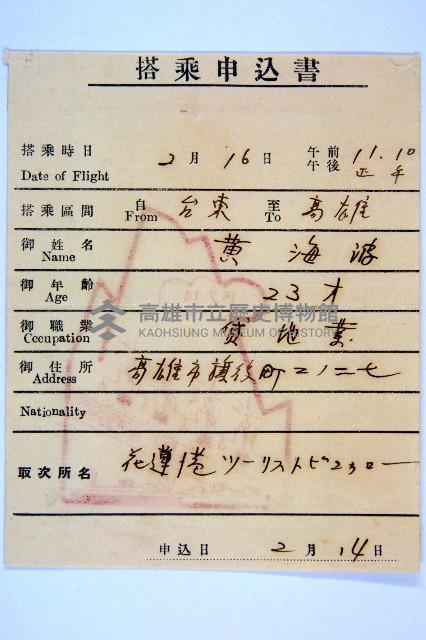 搭乘申込書
搭乘時日 Date of Flight 2月16日 午前 午後 11.10 正午
搭乘區間 自 From 台東 至 To 高雄
御姓名 Name 黄海波
御年齡 Age 23才
御職業 Cccupation 貸地業
御住所 Address 高雄市旗後町二ノ二七
Nationality
取次所名 花蓮港ツーリストビューロー
申込日 2月14日
高雄市立歷史博物館
KAOHSIUNG MUSEUM OF HISTORY